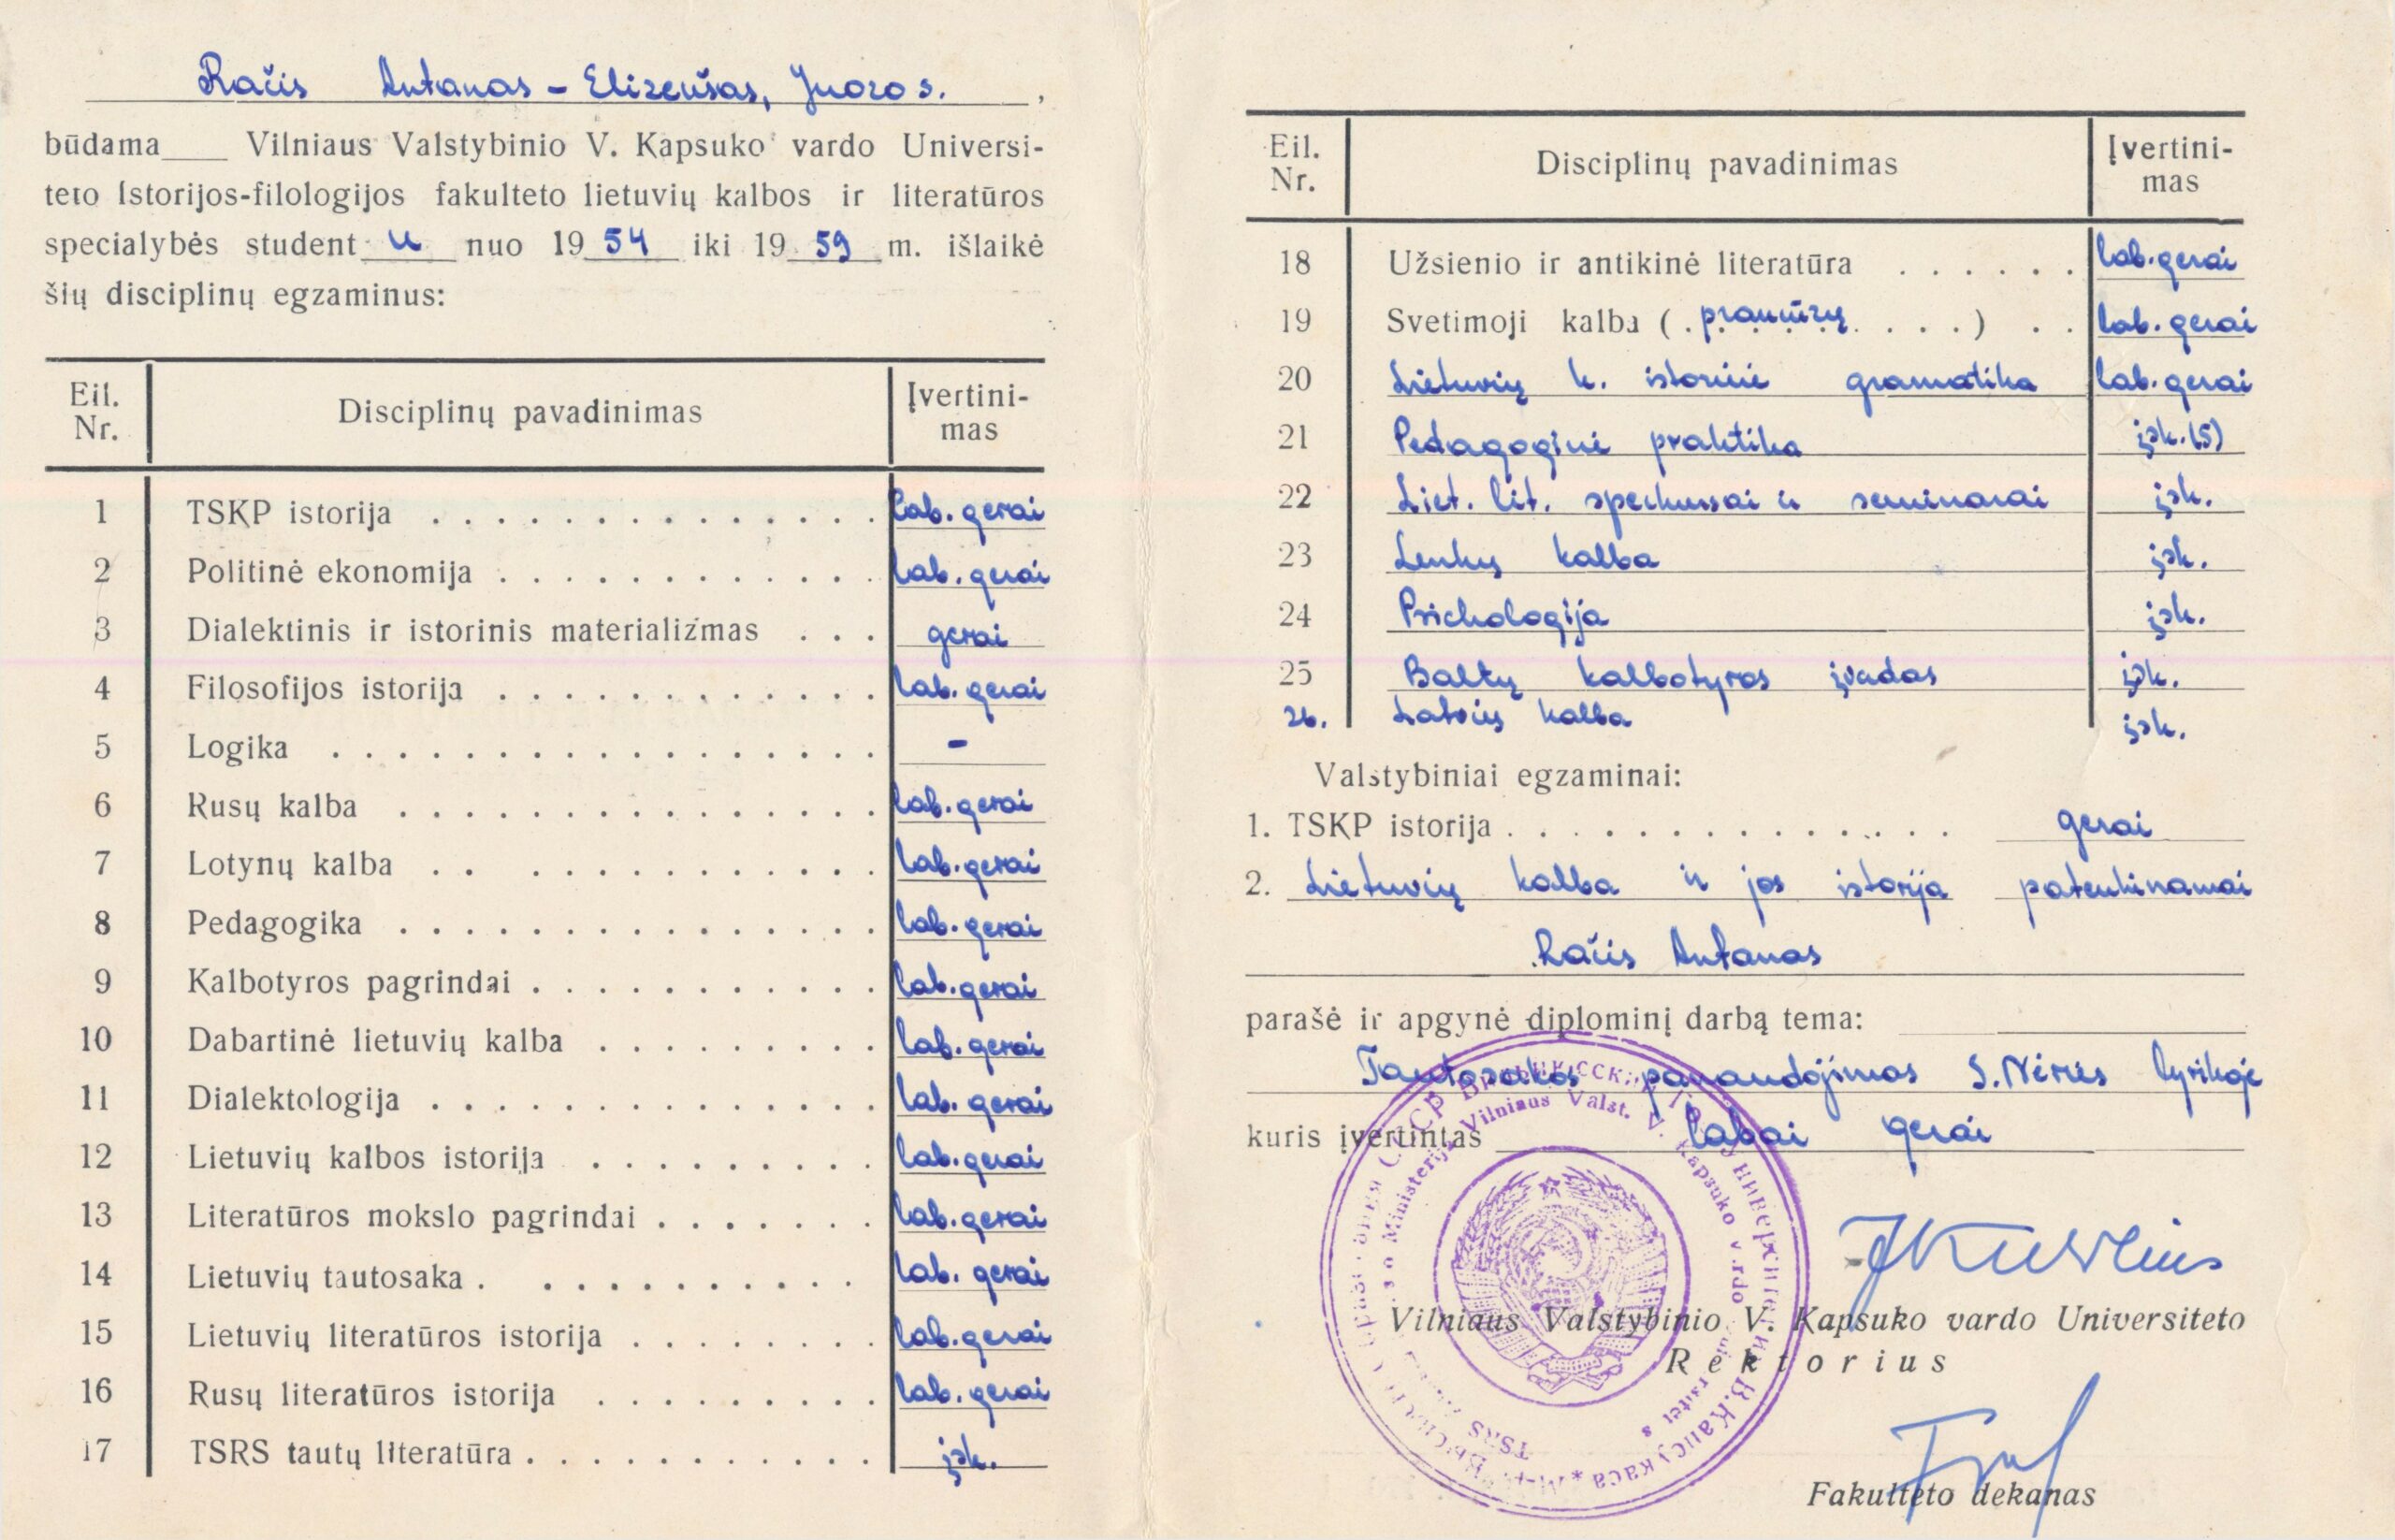 Račis Antanas – Elizeušas, Juozo s. ,
būdama___ Vilniaus Valstybinio V. Kapsuko vardo Universi-
teto Istorijos-filologijos fakulteto lietuvių kalbos ir literatūros
specialybės student u nuo 19 54 iki 19 59 m. išlaikė
šių disciplinų egzaminus:
Eil. Nr. Disciplinų pavadinimas Įvertini-mas
1 TSKP istorija . . . . . . . . . . . . . . lab. gerai
2 Politinė ekonomija . . . . . . . . . . . . lab. gerai
3 Dialektinis ir istorinis materializmas . . . gerai
4 Filosofijos istorija . . . . . . . . . . . . lab. gerai
5 Logika . . . . . . . . . . . . . . . . . –
6 Rusų kalba . . . . . . . . . . . . . . . lab. gerai
7 Lotynų kalba . . . . . . . . . . . . . lab. gerai
8 Pedagogika . . . . . . . . . . . . . . . lab. gerai
9 Kalbotyros pagrindai . . . . . . . . . . . lab. gerai
10 Dabartinė lietuvių kalba . . . . . . . . . lab. gerai
11 Dialektologija . . . . . . . . . . . . . . lab. gerai
12 Lietuvių kalbos istorija . . . . . . . . . lab. gerai
13 Literatūros mokslo pagrindai . . . . . . . lab. gerai
14 Lietuvių tautosaka . . . . . . . . . . . lab. gerai
15 Lietuvių literatūros istorija . . . . . . . . lab. gerai
16 Rusų literatūros istorija . . . . . . . . . lab. gerai
17 TSRS tautų literatūra . . . . . . . . . . . įsk.
Eil. Nr. Disciplinų pavadinimas Įvertini-mas
18 Užsienio ir antikinė literatūra . . . . . . lab. gerai
19 Svetimoji kalba ( . prancūzų . . . . ) . . lab. gerai
20 Lietuvių k. istorinė gramatika lab. gerai
21 Pedagoginė praktika įsk. (5)
22 Liet. lit. speckursai ir seminarai įsk.
23 Lenkų kalba įsk.
24 Psichologija įsk.
25 Baltų kalbotyros įvadas įsk.
26. Latvių kalba įsk.
Valstybiniai egzaminai:
1. TSKP istorija . . . . . . . . . . . . . . gerai
2. Lietuvių kalba ir jos istorija patenkinamai
Račis Antanas
parašė ir apgynė diplominį darbą tema:
Tautosakos panaudojimas S. Nėries lyrikoje
kuris įvertintas labai gerai
Vilniaus Valst. V. Kapsuko
TSRS
Vilniaus Valstybinio V. Kapsuko vardo Universiteto
Rektorius
Fakulteto dekanas